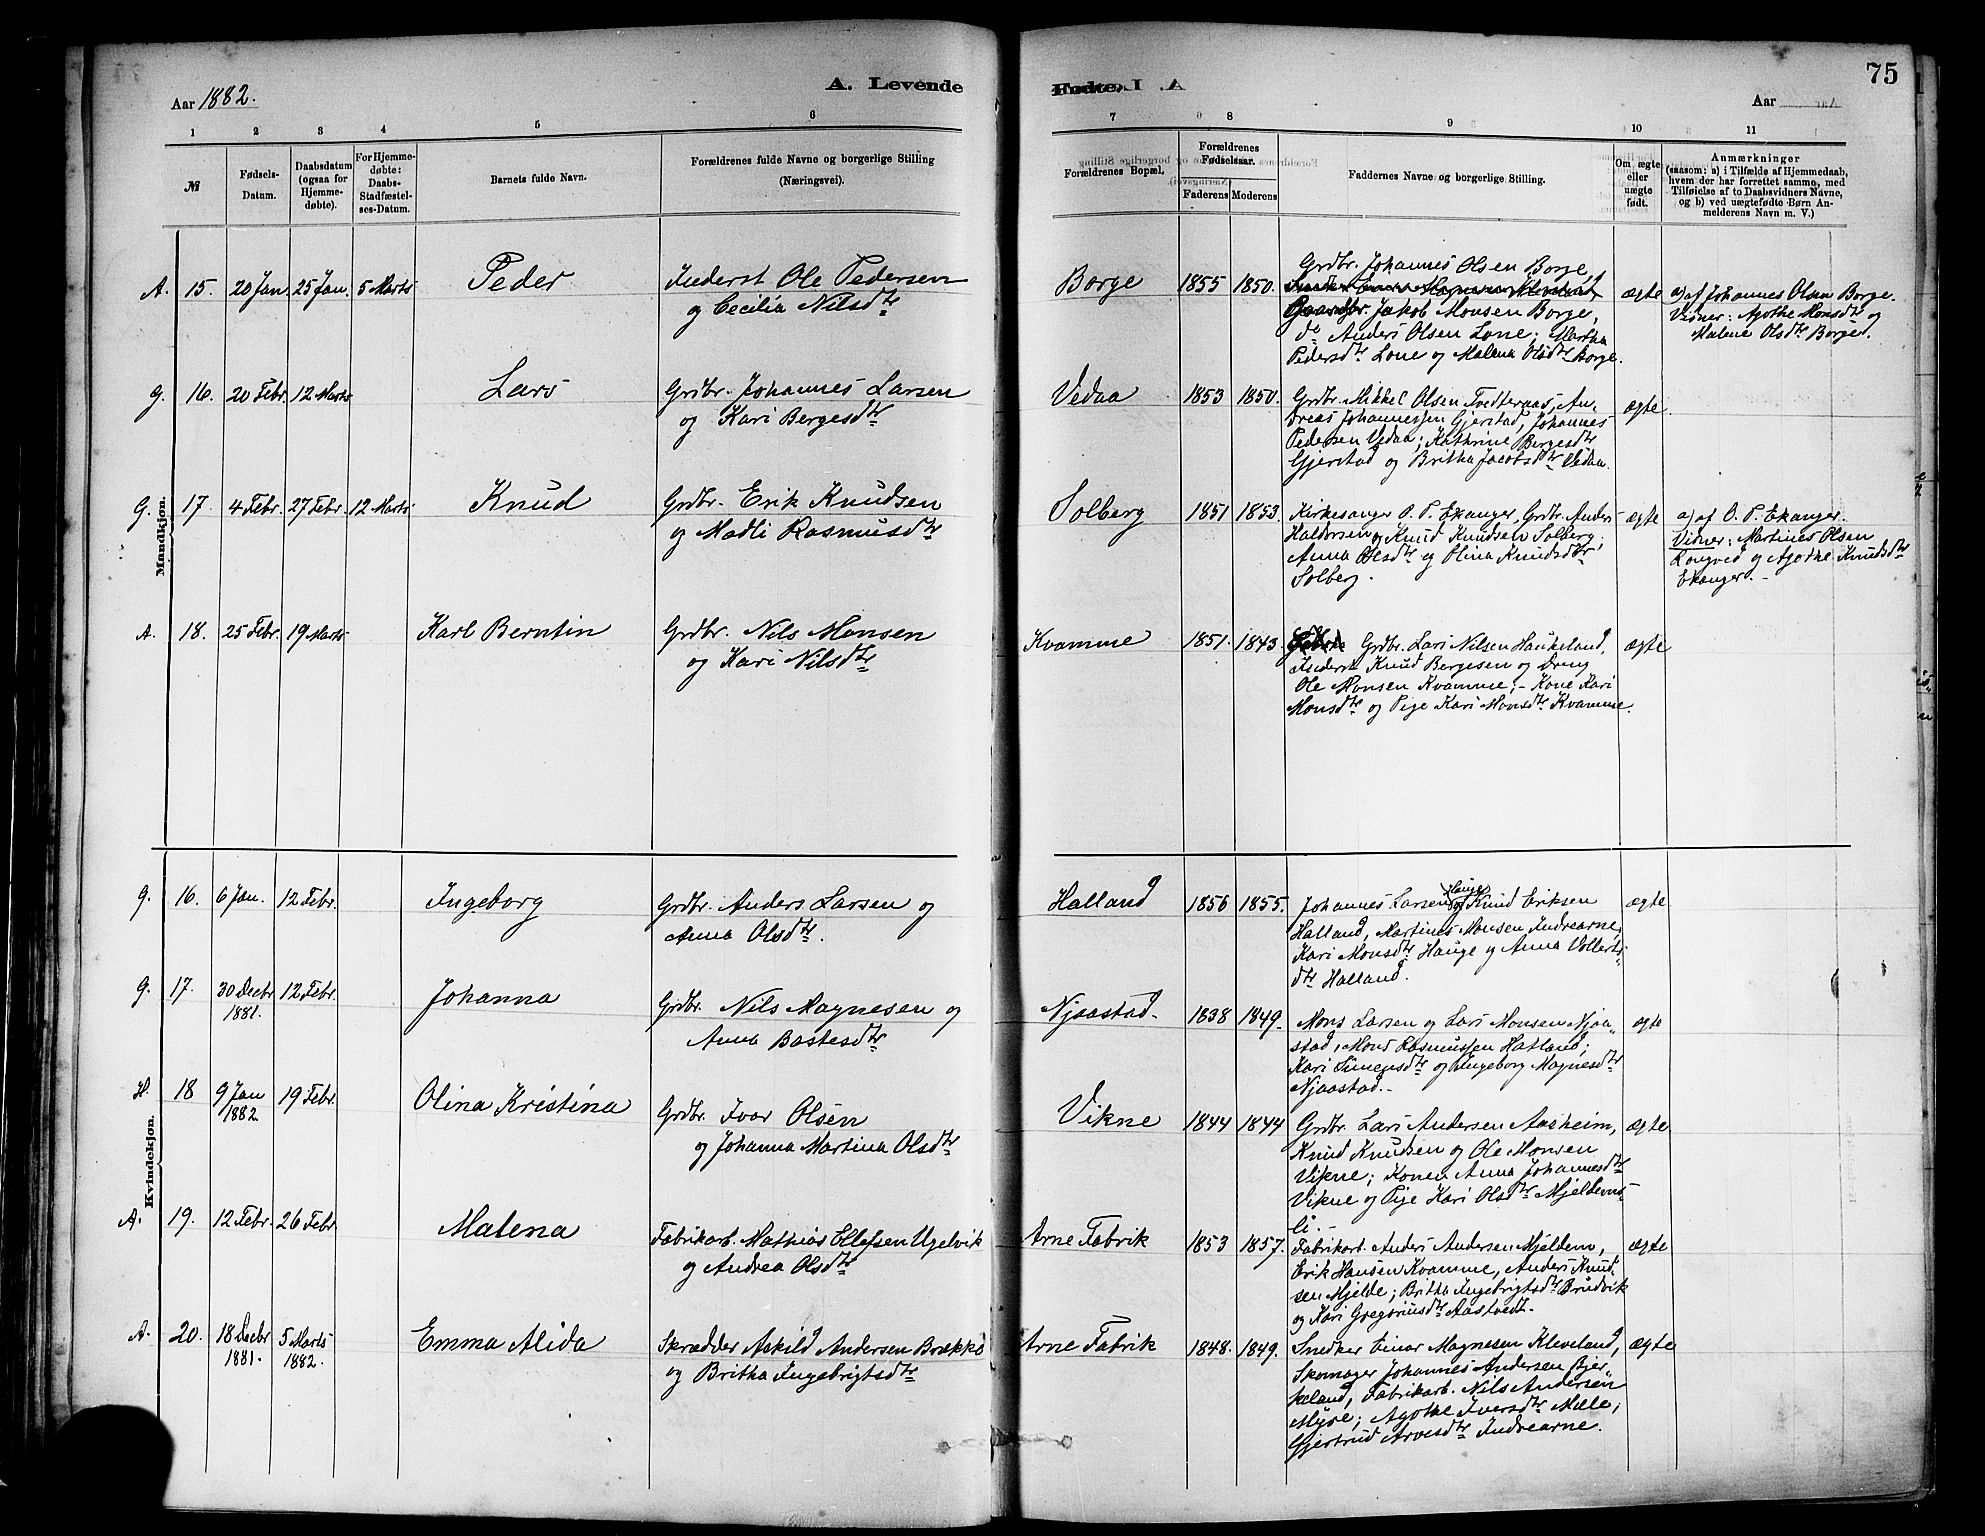 75
A. Levende
Fødte.
Aar 1882.
Aar
1 2 3 4 5 6 7 8 9 10 11
№
Fødsels-
Datum.
Daabsdatum
(ogsaa for
Hjemme-
døbte).
For Hjemme-
døbte:
Daabs-
Stadfæstel-
ses-Datum.
Barnets fulde Navn.
Forældrenes fulde Navne og borgerlige Stilling
(Næringsvei).
Forældrenes Bopæl.
Forældrenes
Fødselsaar.
Faderens Moderens
Faddernes Navne og borgerlige Stilling.
Om ægte
eller
uægte
født.
Anmærkninger
(saasom: a) i Tilfælde af Hjemmedaab,
hvem der har forrettet samme, med
Tilføielse af to Daabsvidners Navne,
og b) ved uægtefødte Børn An-
melderens Navn m. V.)
Mandkjøn.
A. 15. 20 Jan. 25 Jan. 5 Marts
Peder
Inderst Ole Pedersen
og Cecilia Nilsdtr
Borge 1855 1850.
Grdbr. Johannes Olsen Borge,
Gaardbr. Jakob Monsen Borge,
do Anders Olsen Lone; Martha
Pedersdtr Lone og Malena Olsdtr Borge.
ægte
a) af Johannes Olsen Borge.
Vidner: Agothe Monsdtr og
Malene Olsdtr Borge.
G. 16. 20 Febr. 12 Marts
Lars
Grdbr. Johannes Larsen
og Kari Bergesdtr
Vedaa 1853 1850.
Grdbr. Mikkel Olsen Tvedteraas, An-
dreas Johannessen Gjerstad, Johannes
Pedersen Vedaa; Kathrine Bergesdtr
Gjerstad og Britha Jacobsdtr Vedaa.
ægte
G. 17. 4 Febr. 27 Febr. 12 Marts
Knud
Grdbr. Erik Knudsen
og Madli Rasmusdtr
Solberg 1851 1853.
Kirkesanger O. P. Ekanger, Grdbr. Anders
Haldorsen og Knud Knudsen Solberg;
Anna Olsdtr og Olina Knudsdtr
Solberg.
ægte
a) af O. P. Ekanger.
Vidner: Martines Olsen
Langved og Agothe Knudsdtr
Ekanger.
A. 18. 25 Febr. 19 Marts
Karl Berntin
Grdbr. Nils Monsen
og Kari Nilsdtr
Kvamme 1851. 1843.
Grdbr. Lars Nilsen Haukeland,
Inderst Knud Bergesen og Dreng
Ole Monsen Kvamme; Kone Kari
Monsdtr og Pige Kari Monsdtr Kvamme.
ægte
Kvindekjøn.
G. 16. 6 Jan. 12 Febr.
Ingeborg
Grdbr. Anders Larsen og
Anna Olsdtr.
Halland 1856 1855.
Hauge
Johannes Larsen og Knud Eriksen
Halland, Martines Monsen Indrearne,
Kari Monsdtr Hauge og Anna Vollerts-
dtr Halland.
ægte
G. 17. 30 Decbr 12 Febr.
1881.
Johanna
Grdbr. Nils Magnesen og
Anna Bastesdtr
Njaastad. 1838 1849.
Mons Larsen og Lars Monsen Njaa-
stad, Mons Rasmussen Hatland;
Kari Simensdtr og Ingeborg Magnesdtr
Njaastad.
ægte
H. 18 9 Jan 19 Febr.
1882
Olina Kristina
Grdbr. Ivar Olsen
og Johanna Martina Olsdtr
Vikne 1844 1844
Grdbr. Lars Andersen Aasheim,
Knud Knudsen og Ole Monsen
Vikne; Konen Anna Johannesdtr
Vikne og Pige Kari Olsdtr Mjeldems-
li.
ægte
A. 19. 12 Febr. 26 Febr
Malena
Fabrikarb. Mathias Ellefsen Ugelvik
og Andrea Olsdtr
Arne Fabrik 1853 1857.
Fabrikarb. Anders Andersen Mjeldem,
Erik Hansen Kvamme, Anders Knud-
sen Mjelde; Britha Ingebrigtsdtr Brudvik
og Kari Gregoriusdtr Aastvedt.
ægte
A. 20. 18 Decbr 5 Marts
1881. 1882.
Emma Alida
Skrædder Askild Andersen Brække
og Britha Ingebrigtsdtr
Arne Fabrik 1848. 1849.
Snedker Einar Magnesen Kleveland,
Skomager Johannes Andersen Bjer-
keland, Fabrikarb. Nils Andersen
Myre; Agothe Iversdtr Mæle;
Gjertrud Arvesdtr Indrearne.
ægte